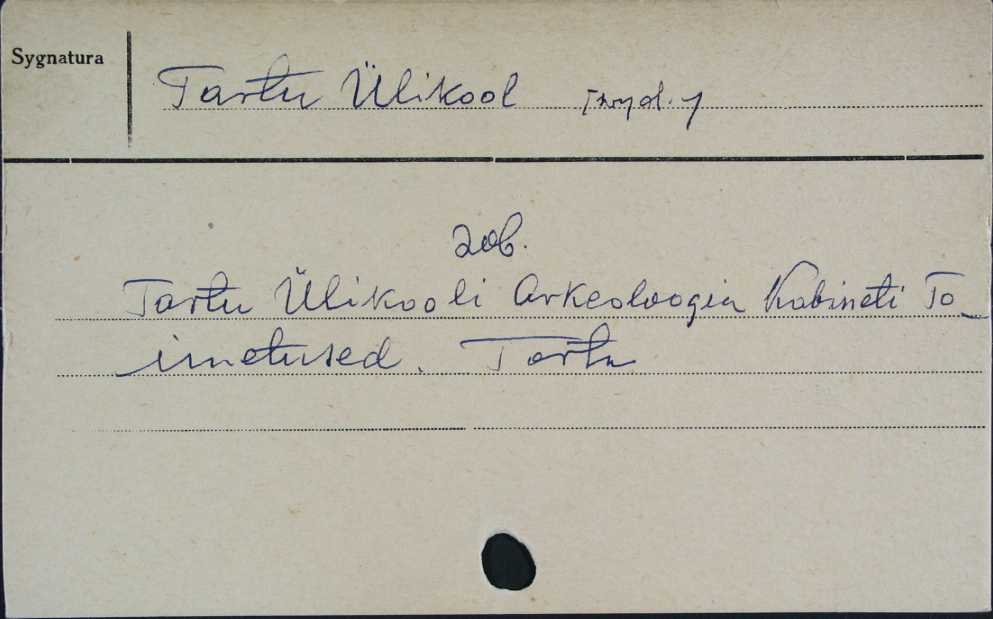 Sygnatura
Tartu Ülikool [wyd.]
zob.
Tartu Ülikooli Arkeoloogia Kabineti To_
imetused. Tartu